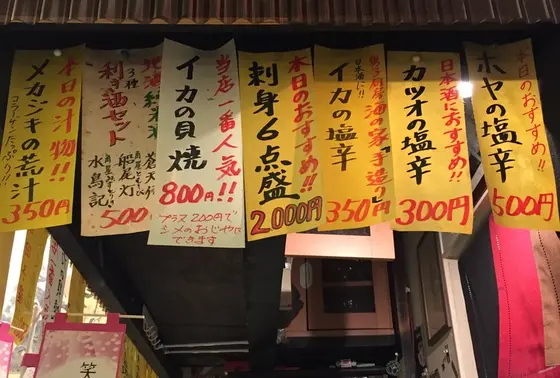 本日のおすすめ!!
ホヤの塩辛
500円
日本酒におすすめ!!
カツオの塩辛
300円
日本酒に!!
イカの塩辛
350円
本日のおすすめ!!
刺身6点盛
2.000円
当店一番人気!!
イカの貝焼
800円!!
プラス200円で
シメのおじやに
できます
3種
利き酒セット
蒼天
船尾灯
水鳥記
500
本日の汁物!!
メカジキの荒汁
コラーゲンたっぷり!!
350円
笑